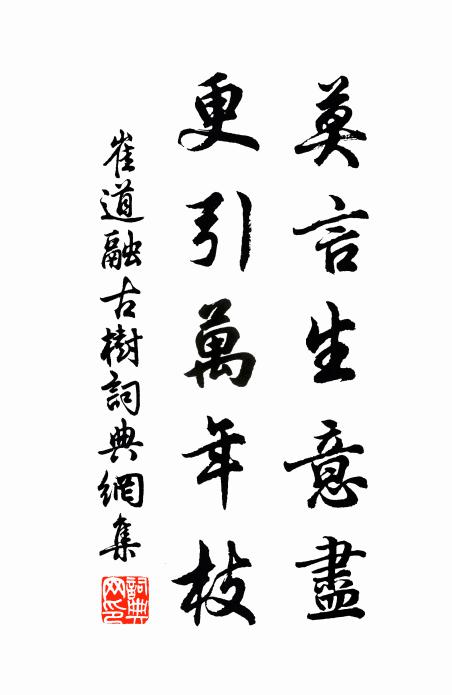 莫言生意盡
更引萬年枝
崔道融古樹詞典網集
詞典
网印